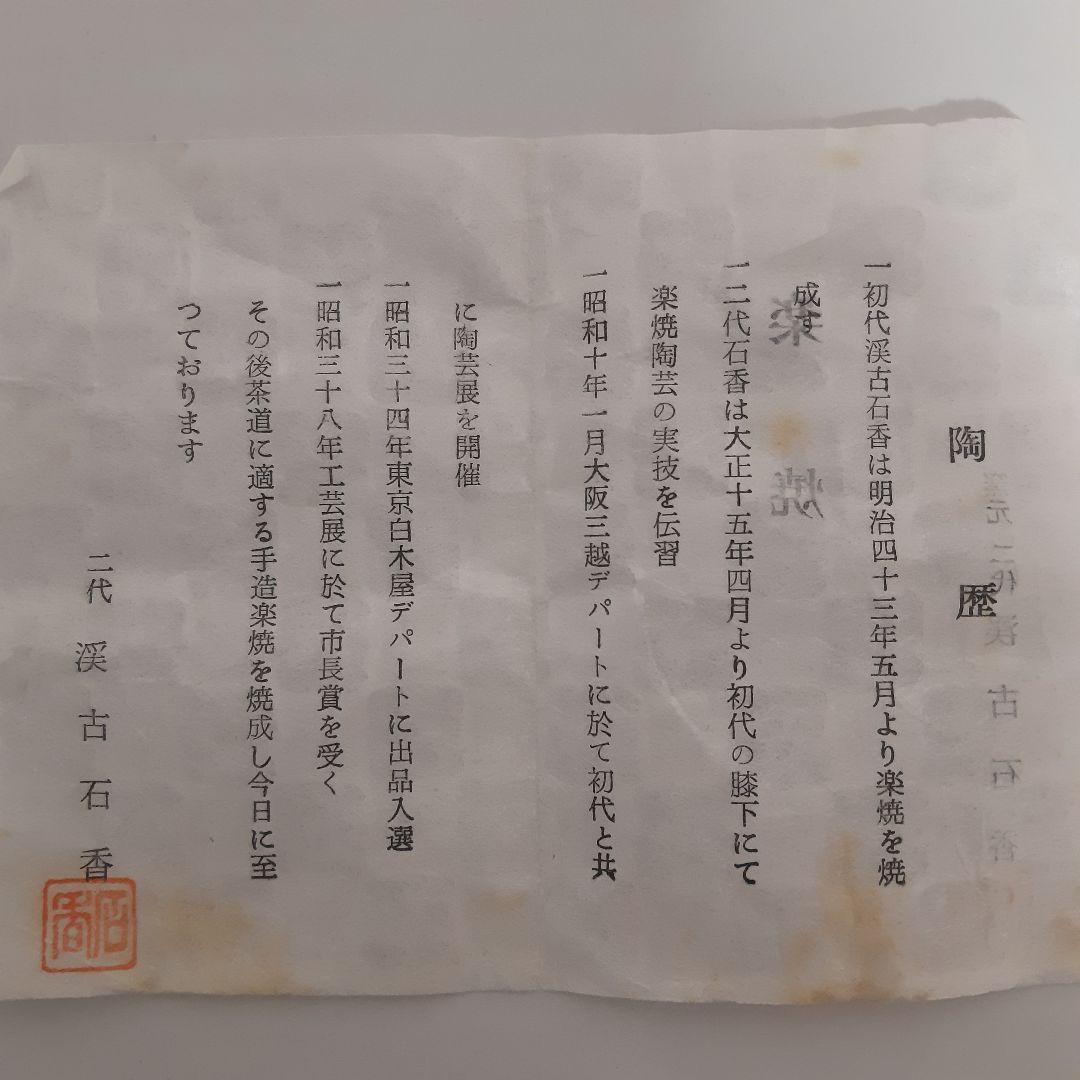 陶歴
一初代渓古石香は明治四十三年五月より楽焼を焼
成す
一二代石香は大正十五年四月より初代の膝下にて
楽焼陶芸の実技を伝習
一昭和十年一月大阪三越デパートに於て初代と共
に陶芸展を開催
一昭和三十四年東京白木屋デパートに出品入選
一昭和三十八年工芸展に於て市長賞を受く
その後茶道に適する手造楽焼を焼成し今日に至
つております
二代 渓古石香
石香
楽焼
窯元 二代 渓古石香